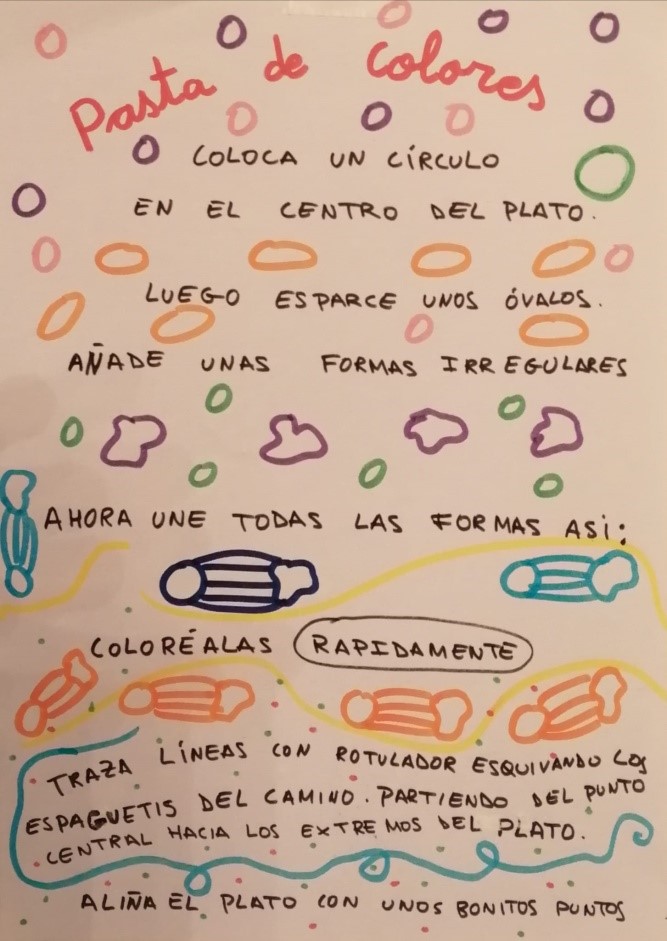 Pasta de colores
COLOCA UN CÍRCULO
EN EL CENTRO DEL PLATO.
LUEGO ESPARCE UNOS ÓVALOS.
AÑADE UNAS FORMAS IRREGULARES
AHORA UNE TODAS LAS FORMAS ASI:
COLORÉALAS RAPIDAMENTE
TRAZA LÍNEAS CON ROTULADOR ESQUIVANDO LOS
ESPAGUETIS DEL CAMINO. PARTIENDO DEL PUNTO
CENTRAL HACIA LOS EXTREMOS DEL PLATO.
ALIÑA EL PLATO CON UNOS BONITOS PUNTOS